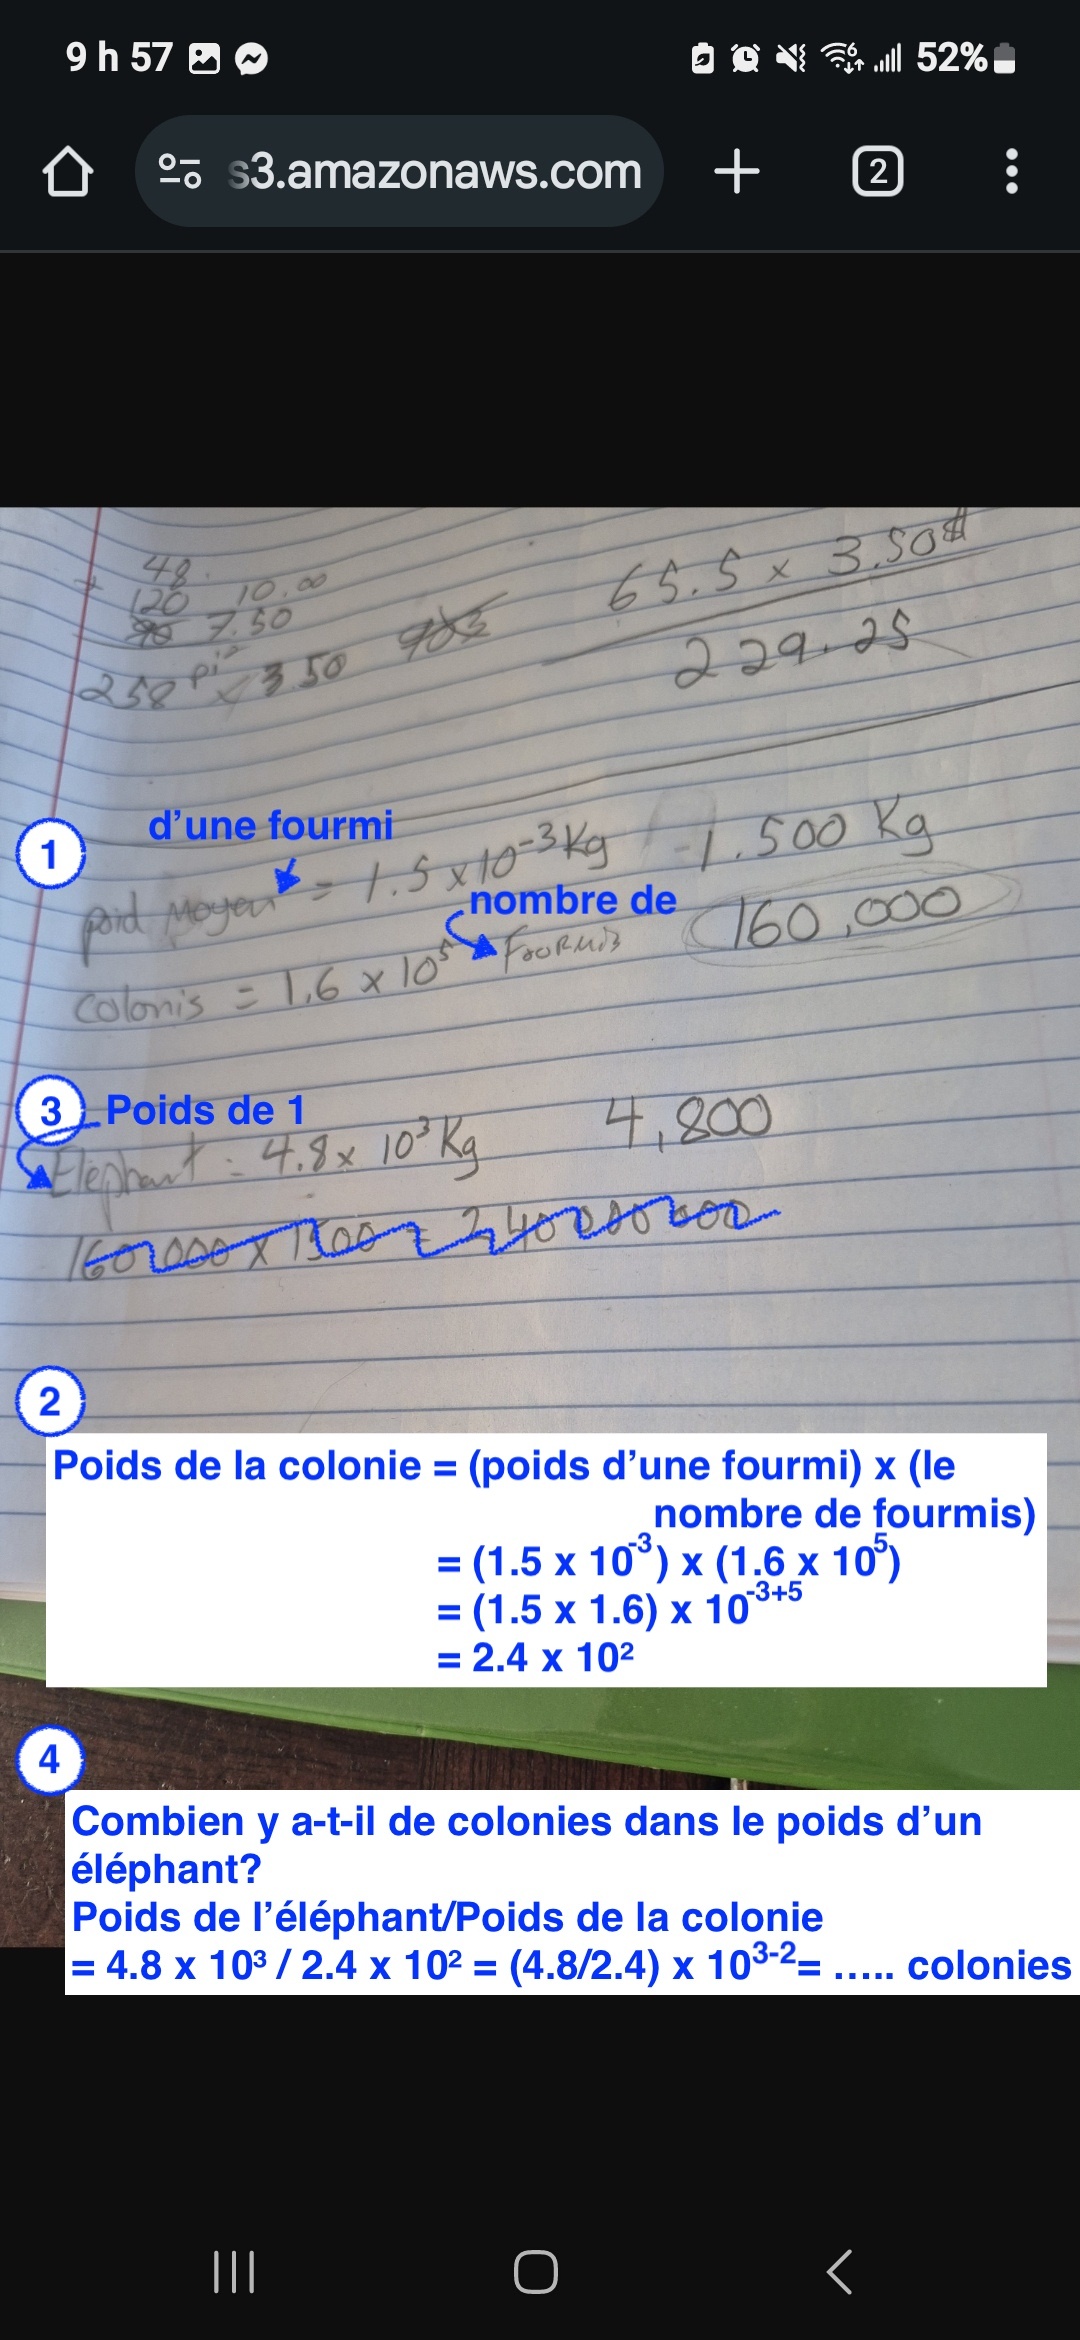 9 h 57
52%
s3.amazonaws.com
2
48.
+ 120 10.00
90 7.50
258 pi² x 3.50
65.5 x 3.50$
229.25
1
d'une fourmi
poid Moyen = 1.5 x 10⁻³ Kg -1.500 Kg
nombre de
colonis = 1.6 x 10⁵ Fourmis 160,000
3 Poids de 1
Elephant : 4.8 x 10³ Kg 4,800
160 000 x 1500 = 240 000 000
2
Poids de la colonie = (poids d'une fourmi) x (le
nombre de fourmis)
= (1.5 x 10⁻³) x (1.6 x 10⁵)
= (1.5 x 1.6) x 10⁻³⁺⁵
= 2.4 x 10²
4
Combien y a-t-il de colonies dans le poids d'un
éléphant?
Poids de l'éléphant/Poids de la colonie
= 4.8 x 10³ / 2.4 x 10² = (4.8/2.4) x 10³⁻²= ..... colonies